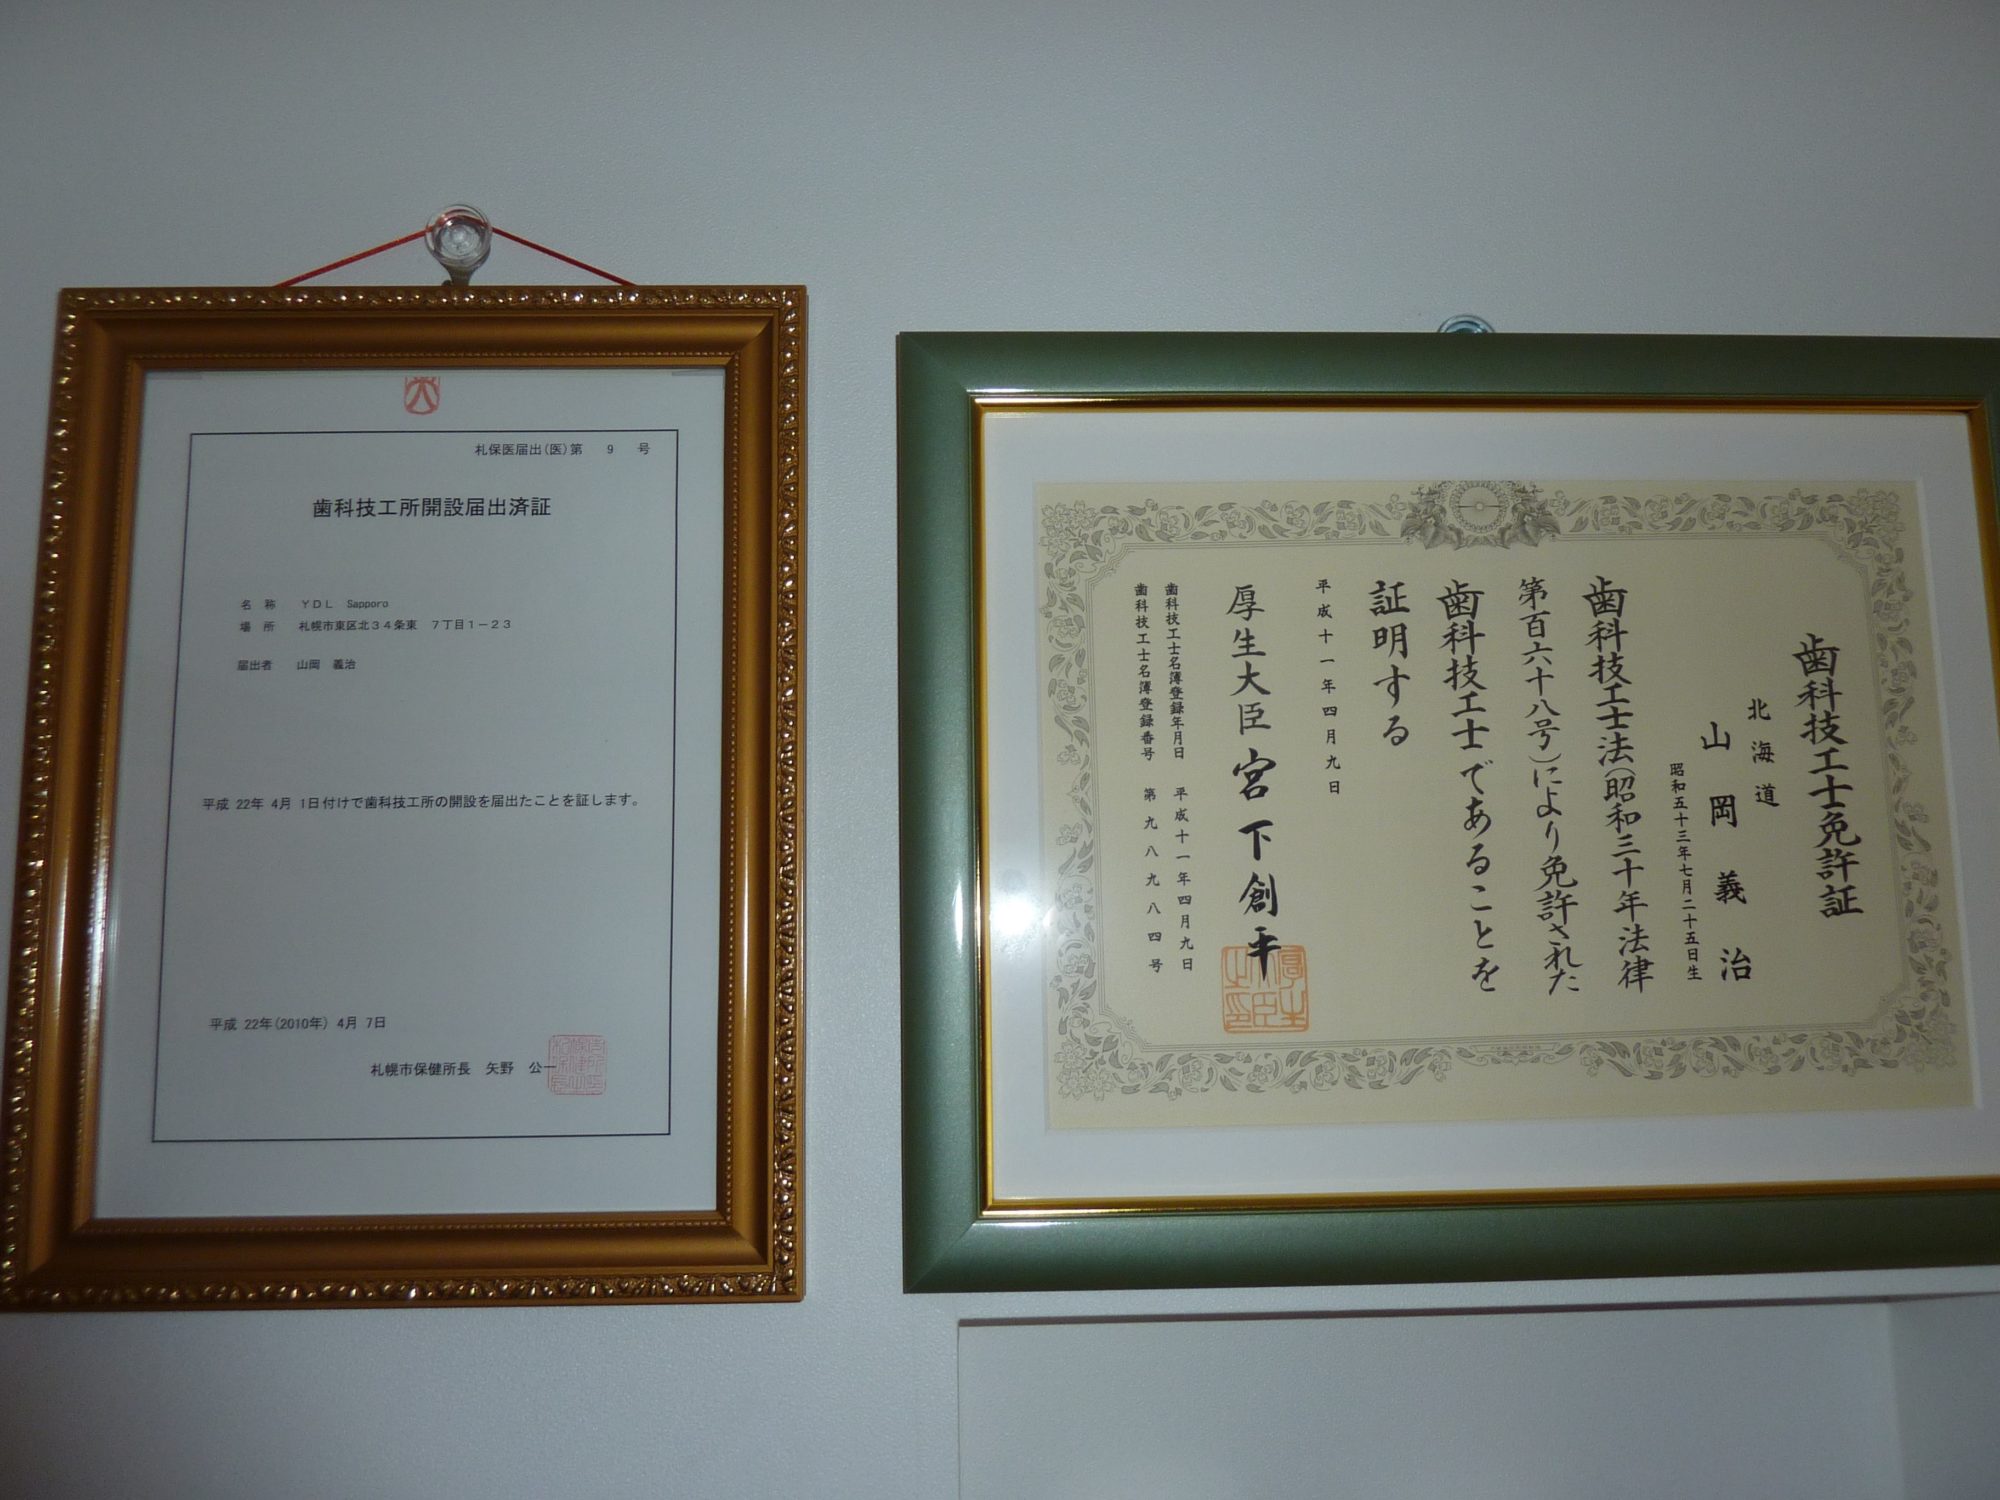 札保医届出(医)第 9 号
歯科技工所開設届出済証
名 称 YDL Sapporo
場 所 札幌市東区北34条東 7丁目1-23
届出者 山岡 義治
平成 22年 4月 1日付けで歯科技工所の開設を届出たことを証します。
平成 22年(2010年) 4月 7日
札幌市保健所長 矢野 公一
歯科技工士免許証
北海道
山岡義治
昭和五十三年七月二十五日生
歯科技工士法(昭和三十年法律
第百六十八号)により免許された
歯科技工士であることを
証明する
平成十一年四月九日
厚生大臣 宮下創平
歯科技工士名簿登録年月日 平成十一年四月九日
歯科技工士名簿登録番号 第九八九八四号